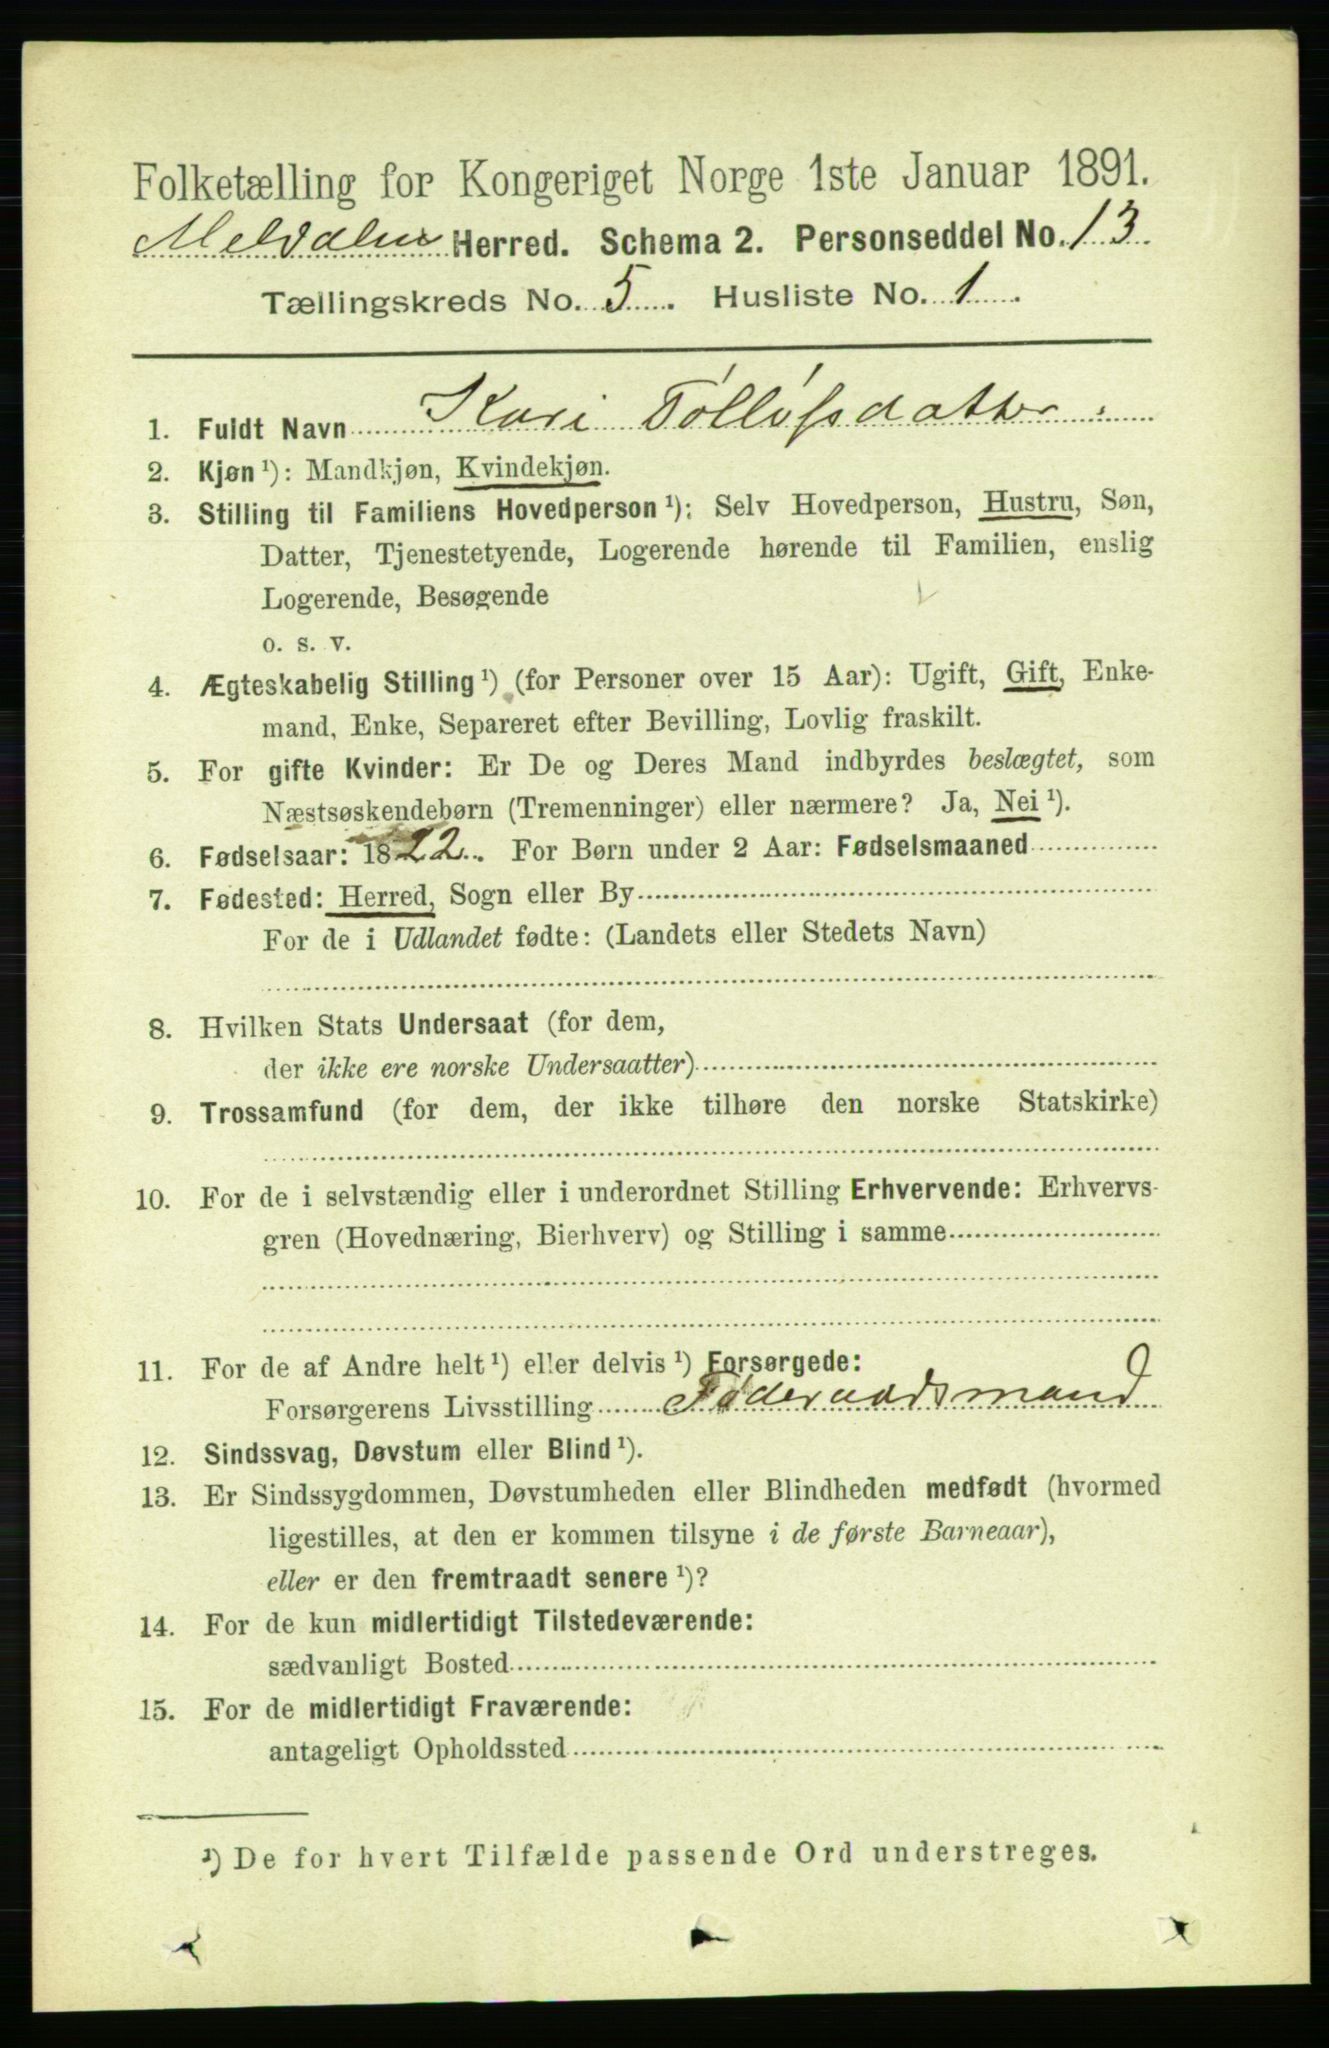 Folketælling for Kongeriget Norge 1ste Januar 1891.
Meldalen Herred. Schema 2. Personseddel No. 13.
Tællingskreds No. 5. Husliste No. 1.
1. Fuldt Navn Kari Tollófsdatter
2. Kjøn ¹): Mandkjøn, Kvindekjøn.
3. Stilling til Familiens Hovedperson ¹): Selv Hovedperson, Hustru, Søn,
Datter, Tjenestetyende, Logerende hørende til Familien, enslig
Logerende, Besøgende
o. s. v.
4. Ægteskabelig Stilling ¹) (for Personer over 15 Aar): Ugift, Gift, Enke-
mand, Enke, Separeret efter Bevilling, Lovlig fraskilt.
5. For gifte Kvinder: Er De og Deres Mand indbyrdes beslægtet, som
Næstsøskendebørn (Tremenninger) eller nærmere? Ja, Nei ¹).
6. Fødselsaar: 1822. For Børn under 2 Aar: Fødselsmaaned
7. Fødested: Herred, Sogn eller By
For de i Udlandet fødte: (Landets eller Stedets Navn)
8. Hvilken Stats Undersaat (for dem,
der ikke ere norske Undersaatter)
9. Trossamfund (for dem, der ikke tilhøre den norske Statskirke)
10. For de i selvstændig eller i underordnet Stilling Erhvervende: Erhvervs-
gren (Hovednæring, Bierhverv) og Stilling i samme
11. For de af Andre helt ¹) eller delvis ¹) Forsørgede:
Forsørgerens Livsstilling Føderaadsmand
12. Sindssvag, Døvstum eller Blind ¹).
13. Er Sindssygdommen, Døvstumheden eller Blindheden medfødt (hvormed
ligestilles, at den er kommen tilsyne i de første Barneaar),
eller er den fremtraadt senere ¹)?
14. For de kun midlertidigt Tilstedeværende:
sædvanligt Bosted
15. For de midlertidigt Fraværende:
antageligt Opholdssted
¹) De for hvert Tilfælde passende Ord understreges.